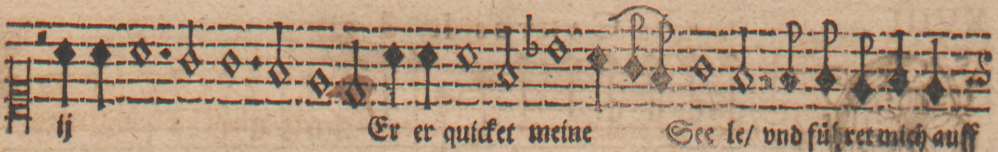 ij Er er quicket meine See le/ vnd führet mich auff